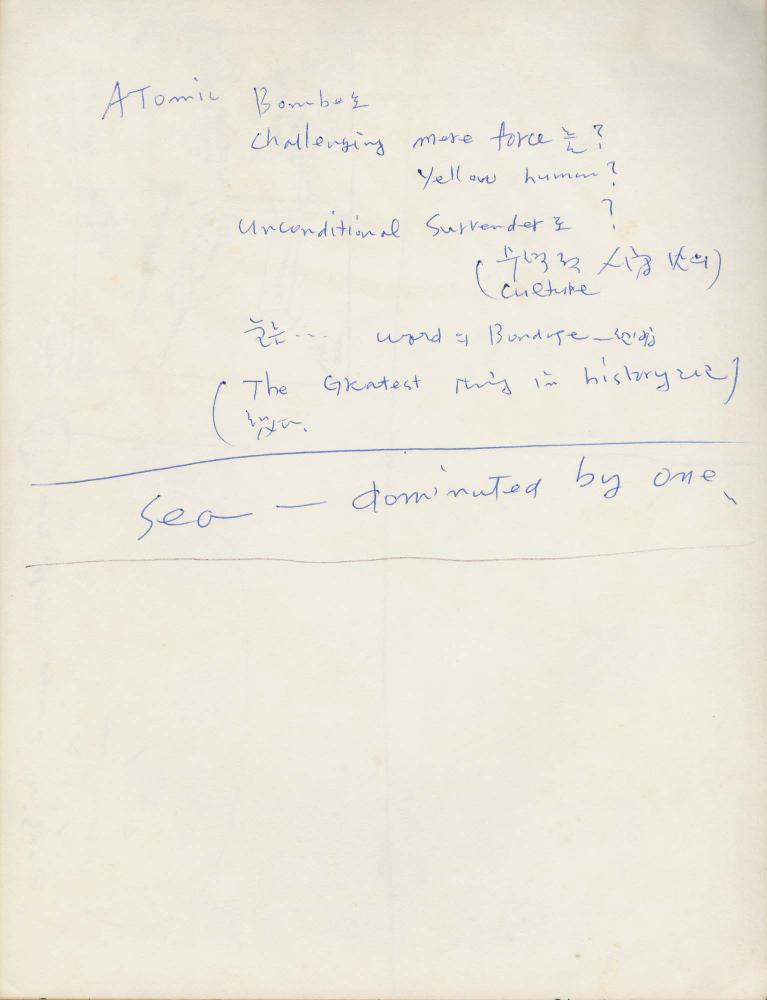 Atomic Bomb로
Challenging mere force는?
Yellow human?
Unconditional Surrender로 ?
(
culture
또는... word의 Bondage —
(The Greatest thing in history라고)
했다.
Sea — dominated by one,